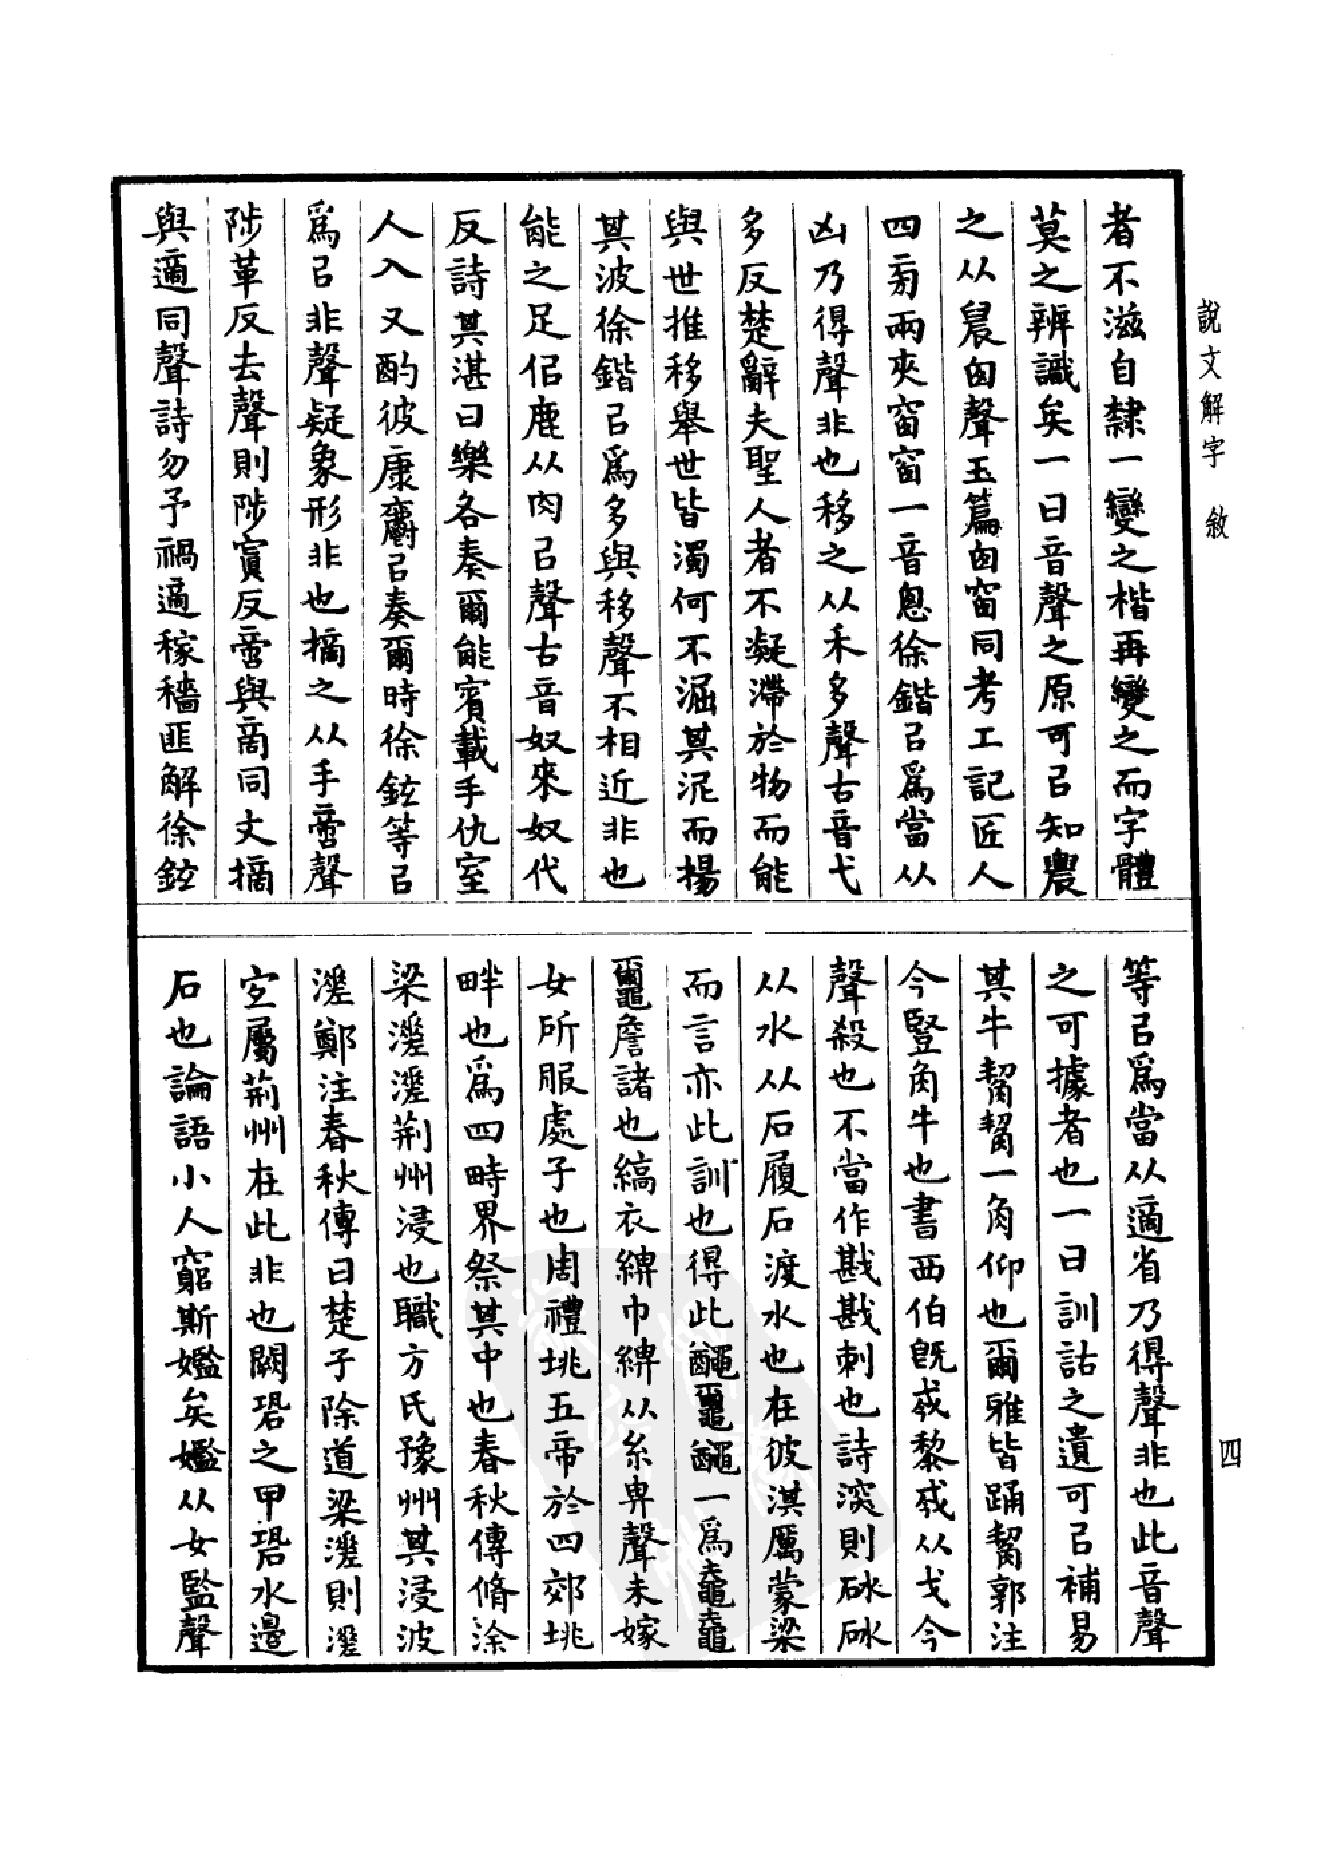 說文解字 敘
者不滋自隸一變之楷再變之而字體
莫之辨識矣一曰音聲之原可㠯知農
之从䢅囪聲玉篇囪窗同考工記匠人
四㫄兩夾窗窗一音恖徐鍇㠯爲當从
凶乃得聲非也移之从禾多聲古音弋
多反楚辭夫聖人者不凝滯於物而能
與世推移舉世皆濁何不淈其泥而揚
其波徐鍇㠯爲多與移聲不相近非也
能之足佀鹿从肉㠯聲古音奴來奴代
反詩其湛曰樂各奏爾能賓載手仇室
人入又酌彼康爵㠯奏爾時徐鉉等㠯
爲㠯非聲疑象形非也摘之从手啻聲
陟革反去聲則陟寘反啻與商同文摘
與適同聲詩勿予禍適稼穡匪解徐鉉
等㠯爲當从適省乃得聲非也此音聲
之可據者也一曰訓詁之遺可㠯補易
其牛觢觢一角仰也爾雅皆踊觢郭注
今豎角牛也書西伯旣𢦟黎𢦟从戈今
聲殺也不當作戡戡刺也詩深則砅砅
从水从石履石渡水也在彼淇厲蒙梁
而言亦此訓也得此𪓰𪓿𪓰一爲𪓐𪓐
𪓿詹諸也縞衣綥巾綥从糸畀聲未嫁
女所服處子也周禮垗五帝於四郊垗
畔也爲四畤界祭其中也春秋傳脩涂
梁溠溠荆州浸也職方氏豫州其浸波
溠鄭注春秋傳曰楚子除道梁溠則溠
宐屬荆州在此非也闕䂬之甲䂬水邊
石也論語小人窮斯㜮矣㜮从女監聲
四